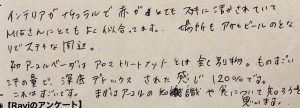 インテリアがナチュラルで赤がとても大切に活かされていて
MIGさんにとてもよく似合ってます。場所もアサヒビールのとなり
でステキな周辺。
初アユルベーダはアロマトリートメントとは全く別物。ものすごい
汗の量で、深度デトックスされた感じ120%です。
これはすごいです。まずはアユルの知識や食について知ろうと
思います。
【Raviのアンケート】